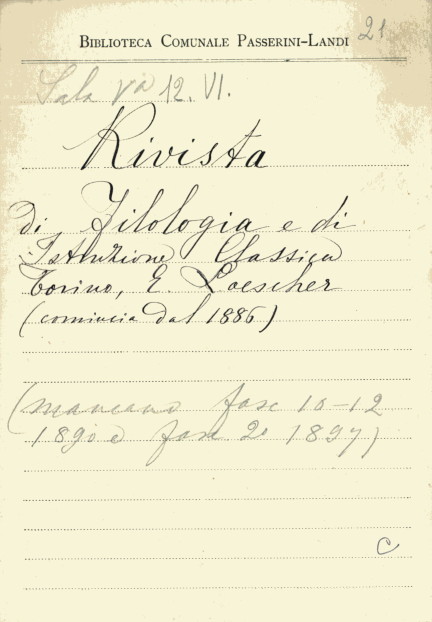 BIBLIOTECA COMUNALE PASSERINI-LANDI 21
Sala Va 12. VI.
Rivista
di Filologia e di
Istruzione Classica
Torino, E. Loescher
(comincia dal 1886)
(mancano fasc 10-12
1890 e fasc 2º 1897)
C